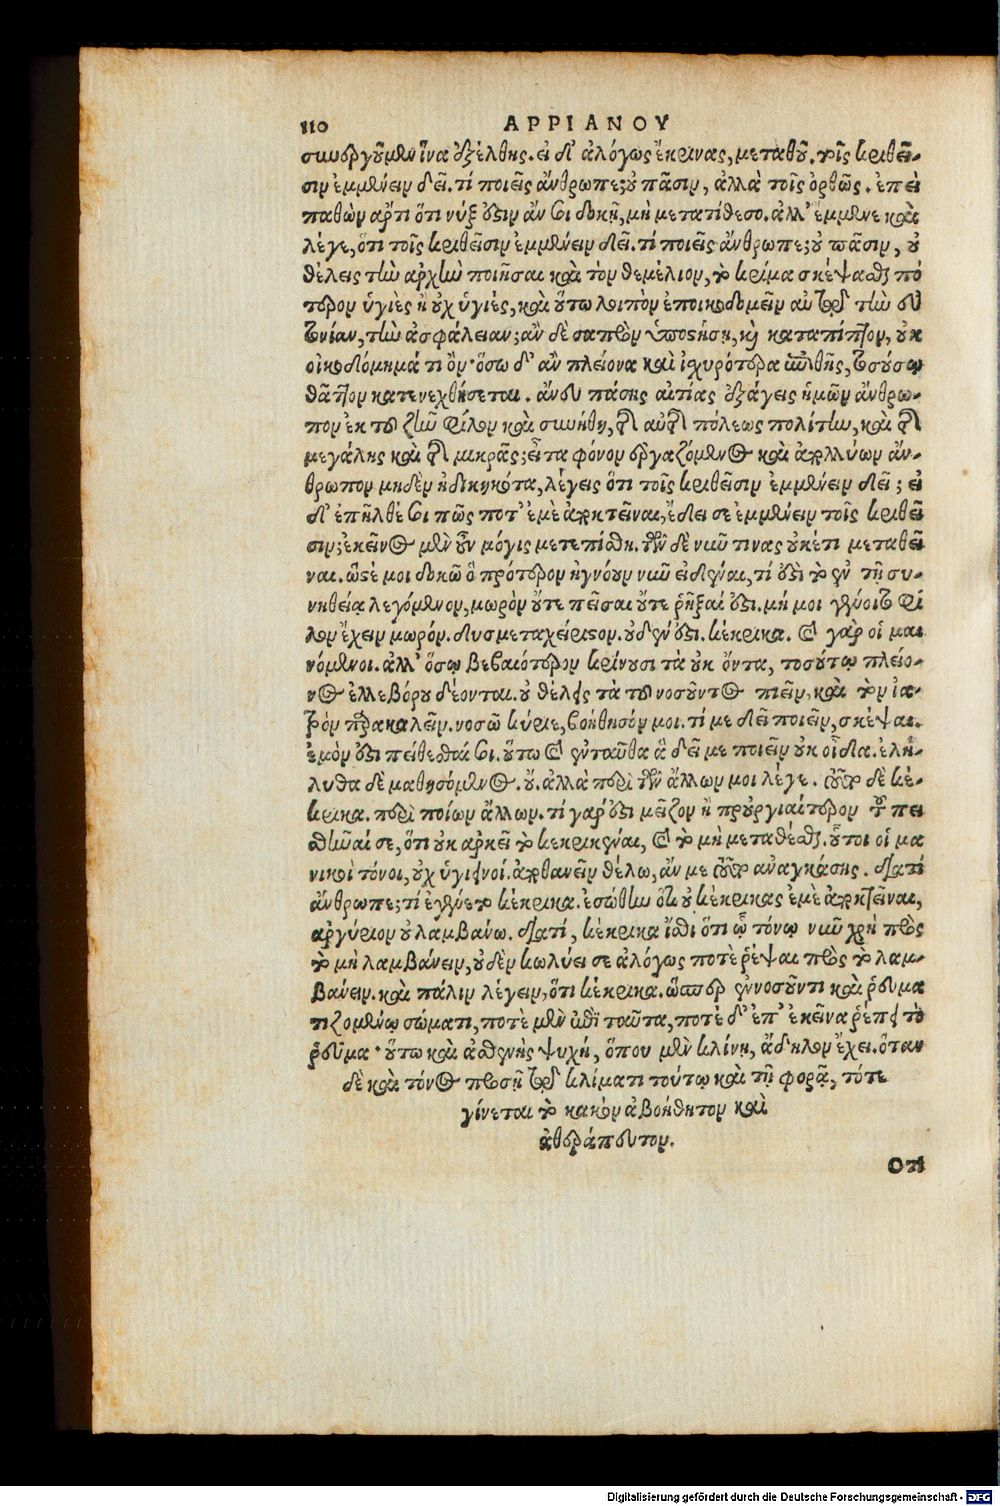 110 ΑΡΡΙΑΝΟΥ
συνεργοῦμεν ἵνα ἐξέλθῃς. εἰ δ' ἀλόγως ἔκρινας, μετάθου. τοῖς κριθεῖ-
σιν ἐμμένειν δεῖ. τί ποιεῖς ἄνθρωπε; οὐ πᾶσιν, ἀλλὰ τοῖς ὀρθῶς. ἐπεὶ
παθὼν ἄρτι ὅτι νύξ ἐστιν ἄν σοι δοκῇ, μὴ μετατίθεσο. ἀλλ' ἔμμενε καὶ
λέγε, ὅτι τοῖς κριθεῖσιν ἐμμένειν δεῖ. τί ποιεῖς ἄνθρωπε; οὐ πᾶσιν, οὐ
θέλεις τὴν ἀρχὴν ποιῆσαι καὶ τὸν θεμέλιον, τὸ κρίμα σκέψασθαι πό
τερον ὑγιὲς ἢ οὐχ ὑγιὲς, καὶ οὕτω λοιπὸν ἐποικοδομεῖν αὐτῷ τὴν εὐ
τονίαν, τὴν ἀσφάλειαν; ἂν δὲ σαπρὸν ὑποστήσῃ, καὶ καταπίπτον, οὐκ
οἰκοδόμημά τι ὂν· ὅσῳ δ' ἂν πλείονα καὶ ἰσχυρότερα ἐπιθῇς, τοσούτῳ
θᾶττον κατενεχθήσεται. ἄνευ πάσης αἰτίας ἐξάγεις ἡμῶν ἄνθρω-
πον ἐκ τοῦ ζῆν φίλον καὶ συνήθη, τῆς αὐτῆς πόλεως πολίτην, καὶ τῆς
μεγάλης καὶ τῆς μικρᾶς; εἶτα φόνον ἐργαζόμενος καὶ ἀπολλύων ἄν-
θρωπον μηδὲν ἠδικηκότα, λέγεις ὅτι τοῖς κριθεῖσιν ἐμμένειν δεῖ; εἰ
δ' ἐπῆλθέ σοι πῶς ποτ' ἐμὲ ἀποκτεῖναι, ἔδει σε ἐμμένειν τοῖς κριθεῖ
σιν; ἐκεῖνος μὲν οὖν μόγις μετεπείσθη. τῶν δὲ νῦν τινας οὐκέτι μεταθεῖ
ναι. ὥστέ μοι δοκῶ ὃ πρότερον ἠγνόουν νῦν εἰδέναι, τί ἐστὶ τὸ ἐν τῇ συ-
νηθείᾳ λεγόμενον, μωρὸν οὔτε πεῖσαι οὔτε ῥῆξαί ἐστι. μή μοι γένοιτο φί
λον ἔχειν μωρόν. δυσμεταχείριστον. οὐδέν ἐστι. κέκρικα. καὶ γὰρ οἱ μαι
νόμενοι. ἀλλ' ὅσῳ βεβαιότερον κρίνουσι τὰ οὐκ ὄντα, τοσούτῳ πλείο-
νος ἐλλεβόρου δέονται. οὐ θέλεις τὰ τοῦ νοσοῦντος ποιεῖν, καὶ τὸν ἰα-
τρὸν παρακαλεῖν. νοσῶ κύριε, βοήθησόν μοι. τί με δεῖ ποιεῖν, σκέψαι.
ἐμόν ἐστι πείθεσθαί σοι. οὕτω καὶ ἐνταῦθα ἃ δεῖ με ποιεῖν οὐκ οἶδα. ἐλή-
λυθα δὲ μαθησόμενος. οὔ. ἀλλὰ περὶ τῶν ἄλλων μοι λέγε. τοῦτο δὲ κέ-
κρικα. περὶ ποίων ἄλλων. τί γάρ ἐστι μεῖζον ἢ προὐργιαίτερον τοῦ πει
σθῆναί σε, ὅτι οὐκ ἀρκεῖ τὸ κεκρικέναι, καὶ τὸ μὴ μεταθέσθαι. οὗτοι οἱ μα
νικοὶ τόνοι, οὐχ ὑγιεινοί. ἀποθανεῖν θέλω, ἄν με τοῦτο ἀναγκάσῃς. διατί
ἄνθρωπε; τί ἐγένετο κέκρικα. ἐσώθην ὅτι οὐ κέκρικας ἐμὲ ἀποκτεῖναι,
ἀργύριον οὐ λαμβάνω. διατί, κέκρικα ἴσθι ὅτι ᾧ τόνῳ νῦν χρῇ πρὸς
τὸ μὴ λαμβάνειν, οὐδὲν κωλύει σε ἀλόγως ποτὲ ῥέψαι πρὸς τὸ λαμ-
βάνειν. καὶ πάλιν λέγειν, ὅτι κέκρικα. ὥσπερ ἐν νοσοῦντι καὶ ῥευμα
τιζομένῳ σώματι, ποτὲ μὲν ἐπὶ ταῦτα, ποτὲ δ' ἐπ' ἐκεῖνα ῥέπει τὸ
ῥεῦμα· οὕτω καὶ ἀσθενὴς ψυχή, ὅπου μὲν κλίνῃ, ἄδηλον ἔχει. ὅταν
δὲ καὶ τόνος προσῇ τῷ κλίματι τούτῳ καὶ τῇ φορᾷ, τότε
γίνεται τὸ κακὸν ἀβοήθητον καὶ
ἀθεράπευτον.
Ὅτι
Digitalisierung gefördert durch die Deutsche Forschungsgemeinschaft - DFG